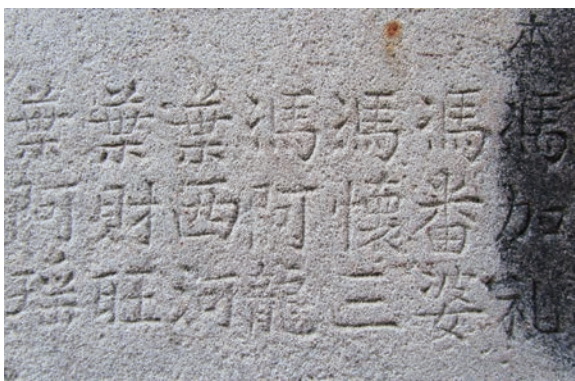 本
馮加礼
馮番婆
馮懷三
馮阿龍
葉西河
葉財旺
葉阿瑶